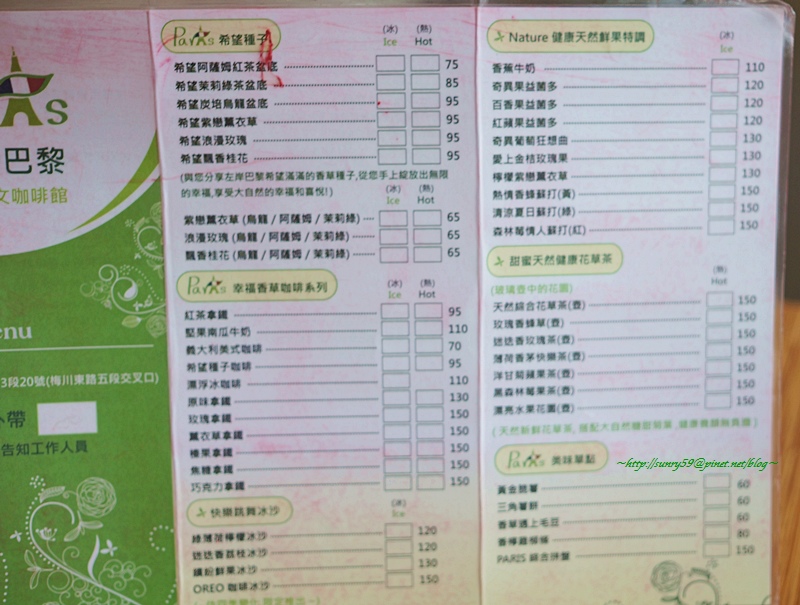 As
巴黎
文咖啡館
enu
3段20號(梅川東路五段交叉口)
外帶
告知工作人員
Paris 希望種子
(冰) (熱)
Ice Hot
希望阿薩姆紅茶盆底 75
希望茉莉綠茶盆底 85
希望炭培烏龍盆底 95
希望紫戀薰衣草 95
希望浪漫玫瑰 95
希望飄香桂花 95
(與您分享左岸巴黎希望滿滿的香草種子,從您手上綻放出無限
的幸福,享受大自然的幸福和喜悅!)
(冰) (熱)
Ice Hot
紫戀薰衣草 (烏龍 / 阿薩姆 / 茉莉綠) 65
浪漫玫瑰 (烏龍 / 阿薩姆 / 茉莉綠) 65
飄香桂花 (烏龍 / 阿薩姆 / 茉莉綠) 65
Paris 幸福香草咖啡系列
(冰) (熱)
Ice Hot
紅茶拿鐵 95
堅果南瓜牛奶 110
義大利美式咖啡 70
希望種子咖啡 95
漂浮冰咖啡 110
原味拿鐵 130
玫瑰拿鐵 150
薰衣草拿鐵 150
榛果拿鐵 150
焦糖拿鐵 150
巧克力拿鐵 150
快樂跳舞冰沙
(冰)
Ice
綠薄荷檸檬冰沙 120
迷迭香荔枝冰沙 120
繽紛鮮果冰沙 130
OREO 咖啡冰沙 150
Nature 健康天然鮮果特調
(冰)
Ice
香蕉牛奶 110
奇異果益菌多 120
百香果益菌多 120
紅蘋果益菌多 120
奇異葡萄狂想曲 130
愛上金桔玫瑰果 130
檸檬紫戀薰衣草 130
熱情香蜂蘇打(黃) 150
清涼夏日蘇打(綠) 150
森林莓情人蘇打(紅) 150
甜蜜天然健康花草茶
(玻璃壺中的花園)
(熱)
Hot
天然綜合花草茶(壺) 150
玫瑰香蜂草(壺) 150
迷迭香玫瑰茶(壺) 150
薄荷香茅快樂茶(壺) 150
洋甘菊蘋果茶(壺) 150
黑森林莓果茶(壺) 150
漂亮水果花園(壺) 150
Paris 美味單點
~http://sunry59@pinet.net/blog~
黃金脆薯 60
三角薯餅 60
香草遇上毛豆 60
香檸雞柳條 80
PARIS 150